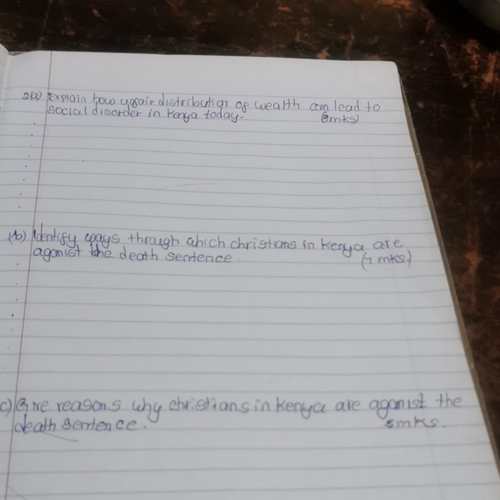 2(a) Explain how unfair distribution of wealth can lead to
social disorder in Kenya today. (8mks)
(b) Identify ways through which christians in Kenya are
against the death sentence. (7 mks)
c) Give reasons why christians in Kenya are against the
death sentence. 5mks.